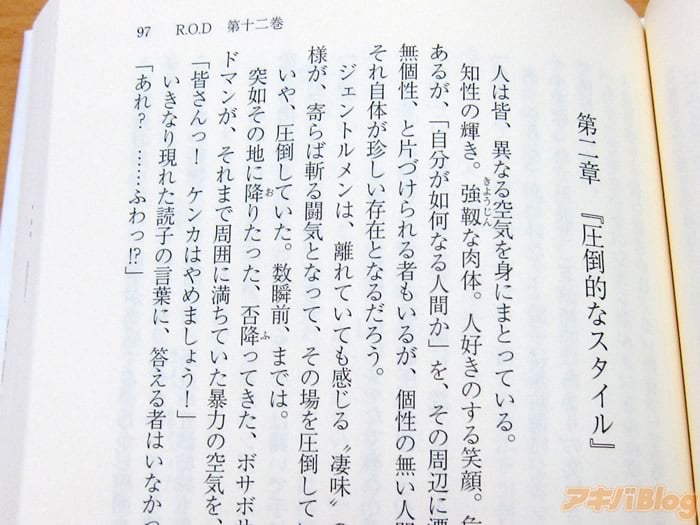 97 R.O.D 第十二巻
第二章 『圧倒的なスタイル』
人は皆、異なる空気を身にまとっている。
知性の輝き。強靱な肉体。人好きのする笑顔。危
きようじん
あるが、「自分が如何なる人間か」を、その周辺に漂
無個性、と片づけられる者もいるが、個性の無い人間
それ自体が珍しい存在となるだろう。
ジェントルメンは、離れていても感じる〝凄味〟の
様が、寄らば斬る闘気となって、その場を圧倒して
いや、圧倒していた。数瞬前、までは。
突如その地に降りたった、否降ってきた、ボサボサ
お
ふ
ドマンが、それまで周囲に満ちていた暴力の空気を、
「皆さんっ! ケンカはやめましょう!」
いきなり現れた読子の言葉に、答える者はいなかっ
「あれ? ……ふわっ!?」
アキバBlog